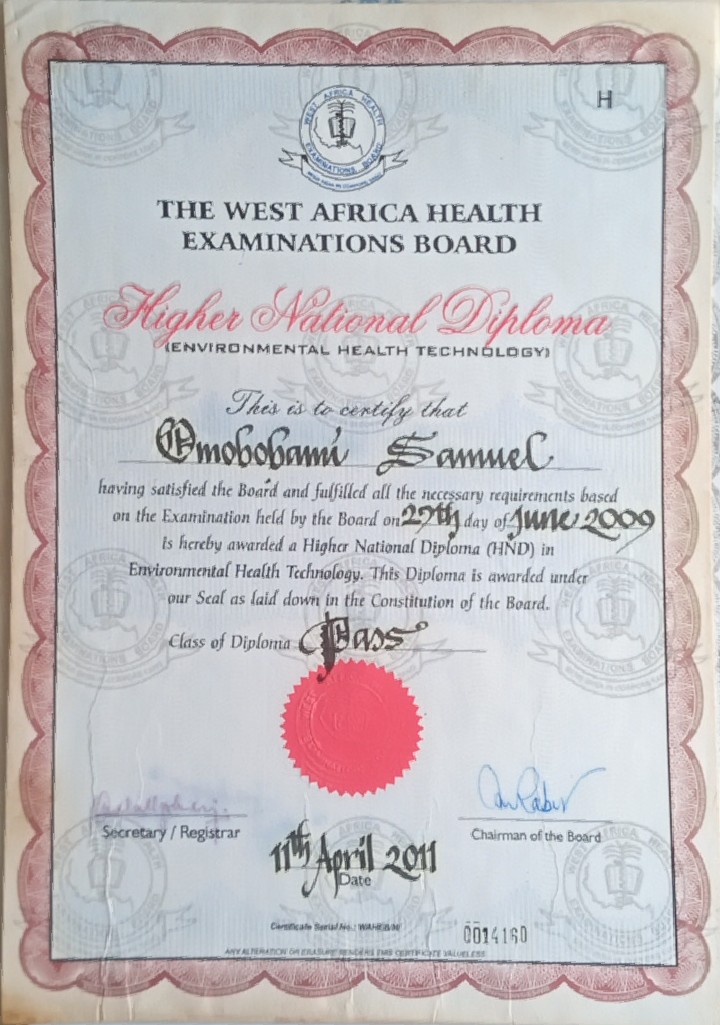 H
WEST AFRICA HEALTH
EXAMINATIONS BOARD
THE WEST AFRICA HEALTH
EXAMINATIONS BOARD
Higher National Diploma
(ENVIRONMENTAL HEALTH TECHNOLOGY)
This is to certify that
Omobobami Samuel
having satisfied the Board and fulfilled all the necessary requirements based
on the Examination held by the Board on 27th day of June 2009
is hereby awarded a Higher National Diploma (HND) in
Environmental Health Technology. This Diploma is awarded under
our Seal as laid down in the Constitution of the Board.
Class of Diploma Pass
Secretary / Registrar
Chairman of the Board
11th April 2011
Date
Certificate Serial No.: WAHEB/M
0014160
ANY ALTERATION OR ERASURE RENDERS THIS CERTIFICATE VALUELESS